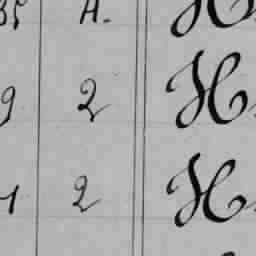 35 A. H
9 2 H
1 2 H